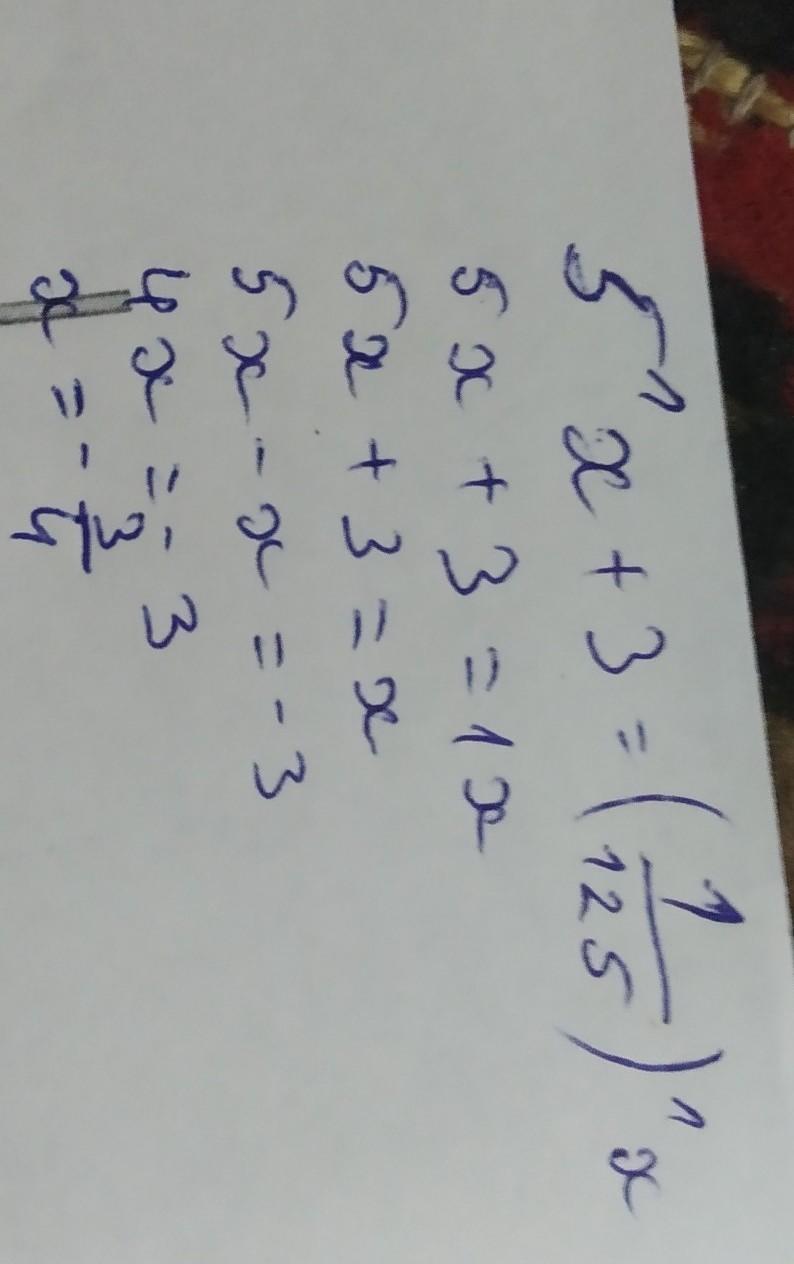 5^1 x + 3 = (1/125)^1 x
5x + 3 = 1x
5x + 3 = x
5x - x = -3
4x = -3
x = -3/4